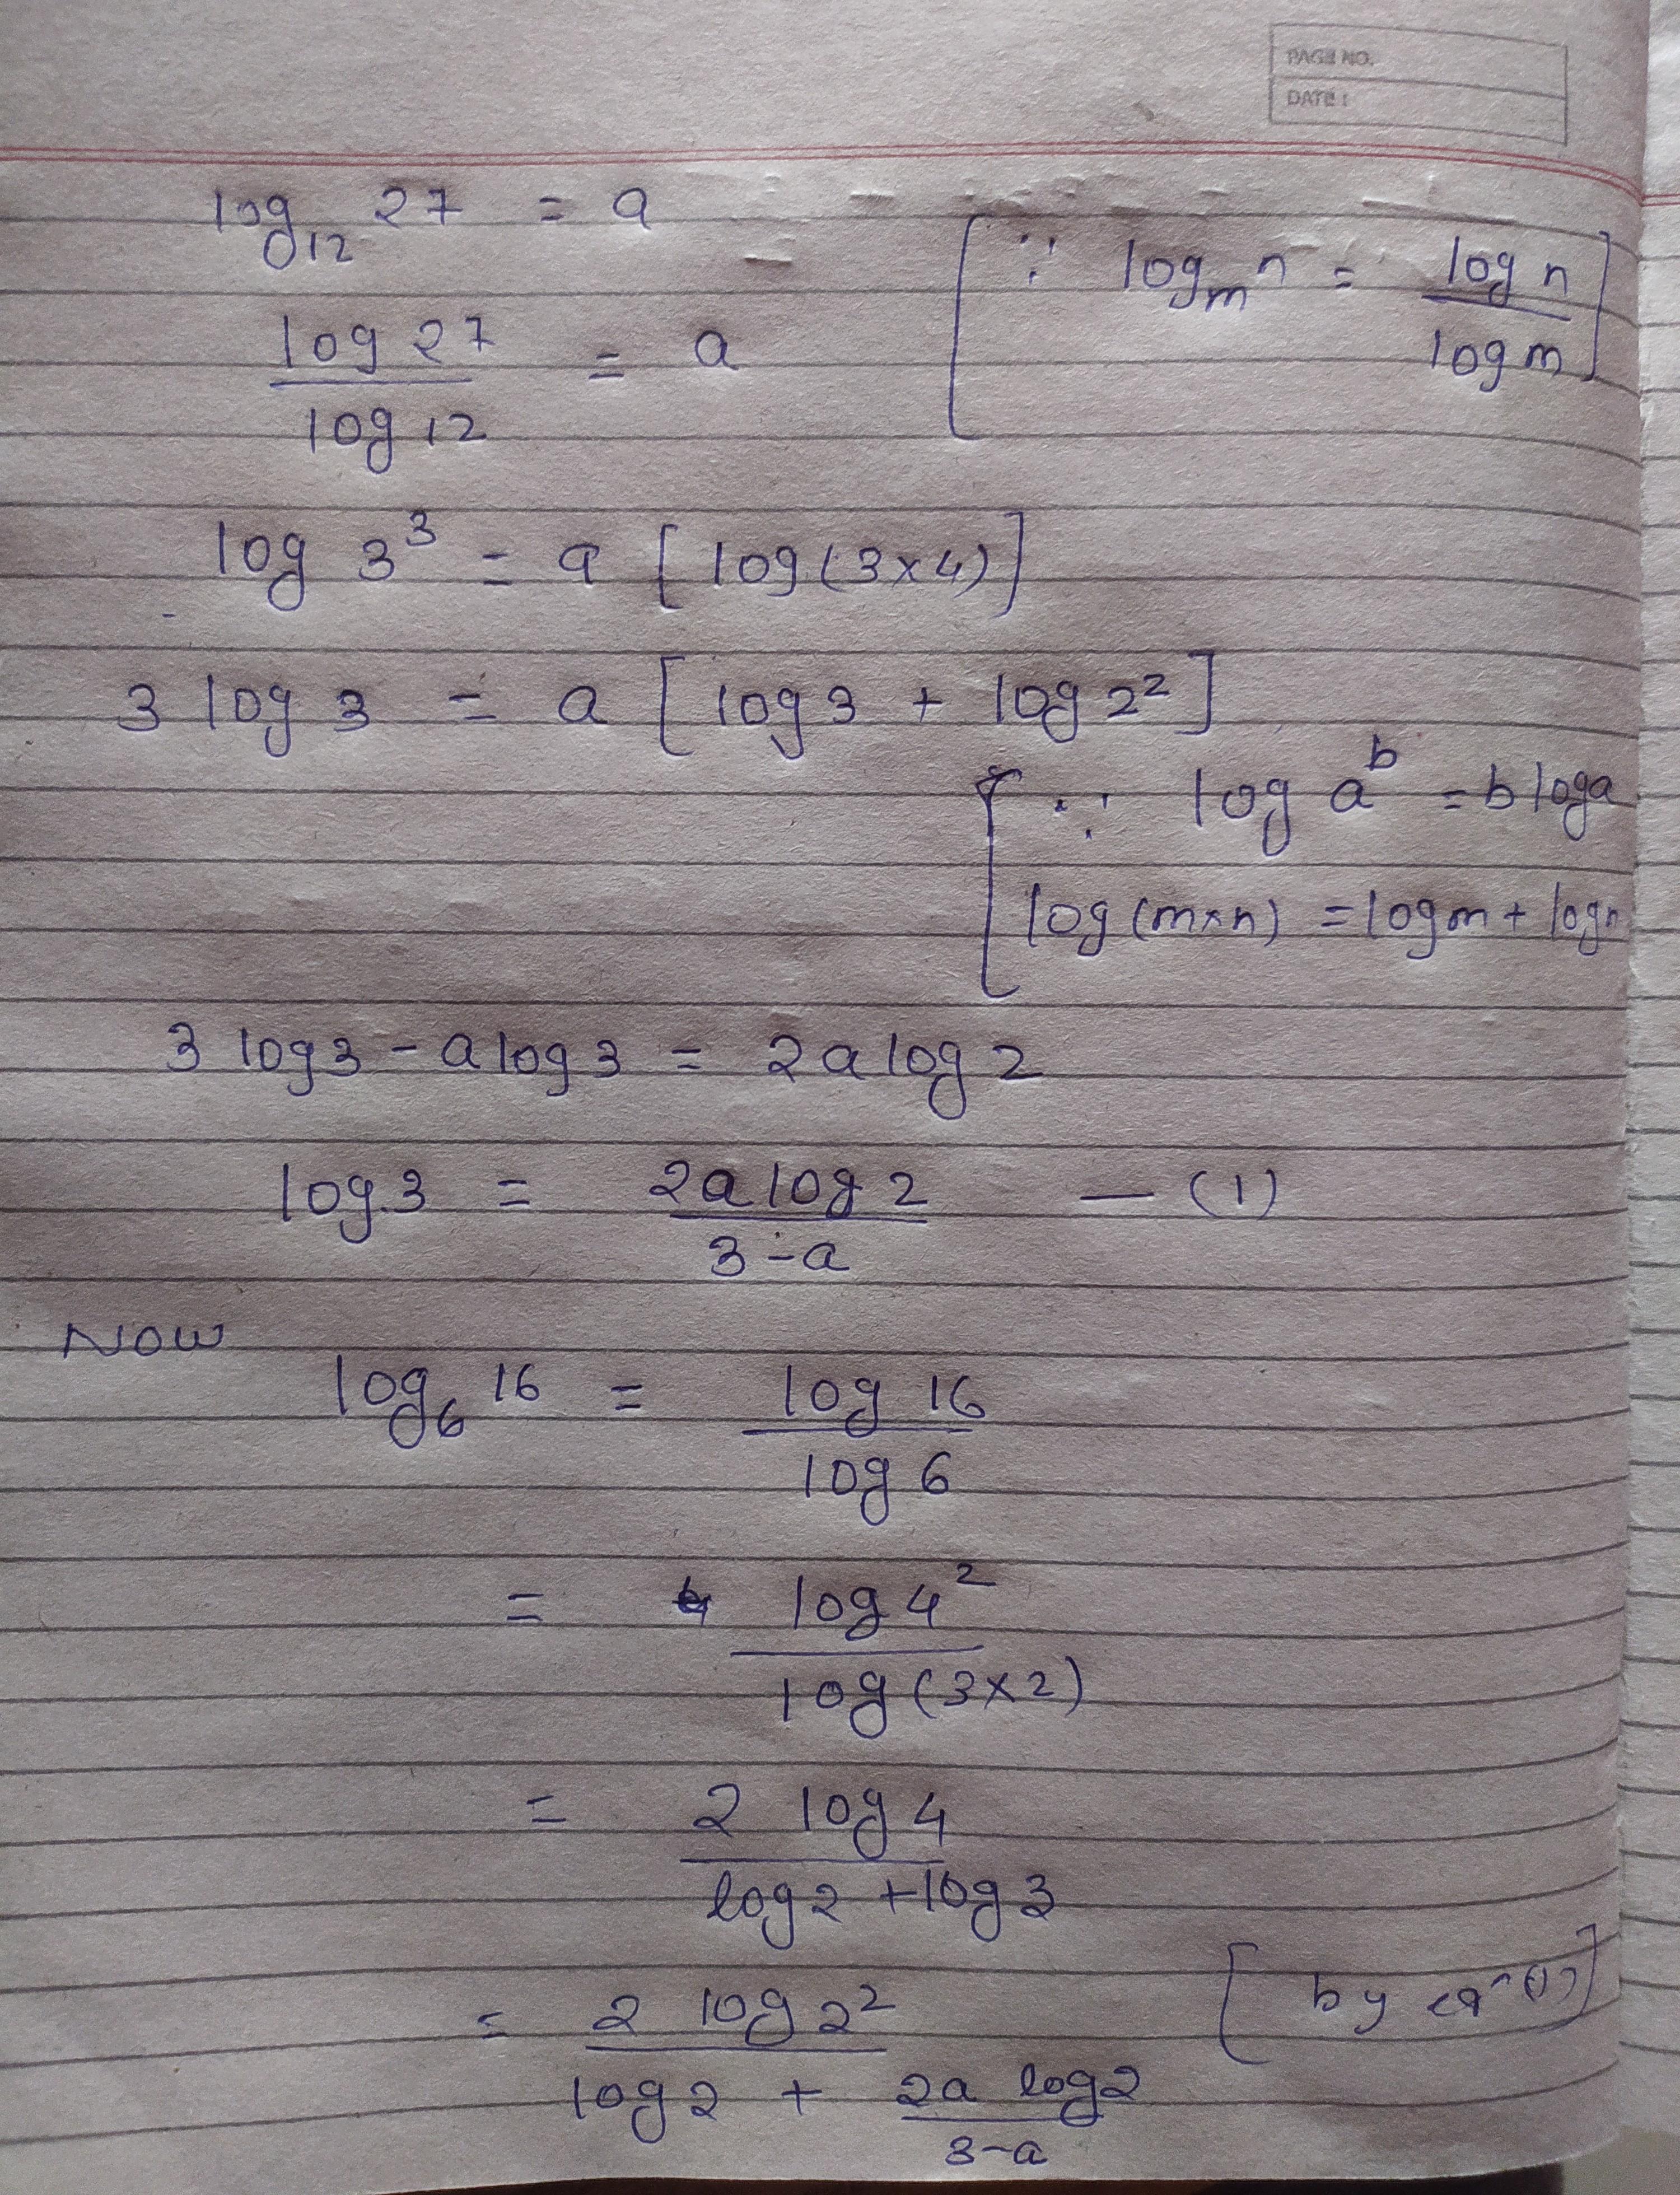 PAGE NO.
DATE :
log₁₂ 27 = a
[∵ logₘ n = log n / log m]
log 27 / log 12 = a
log 3³ = a [log(3×4)]
3 log 3 = a [log 3 + log 2²]
[∵ log aᵇ = b log a
log(m×n) = log m + log n
3 log 3 - a log 3 = 2a log 2
log 3 = 2a log 2 / 3-a — (1)
Now
log₆ 16 = log 16 / log 6
= log 4² / log(3×2)
= 2 log 4 / log 2 + log 3
= 2 log 2² / log 2 + 2a log 2 / 3-a [by eqⁿ (1)]